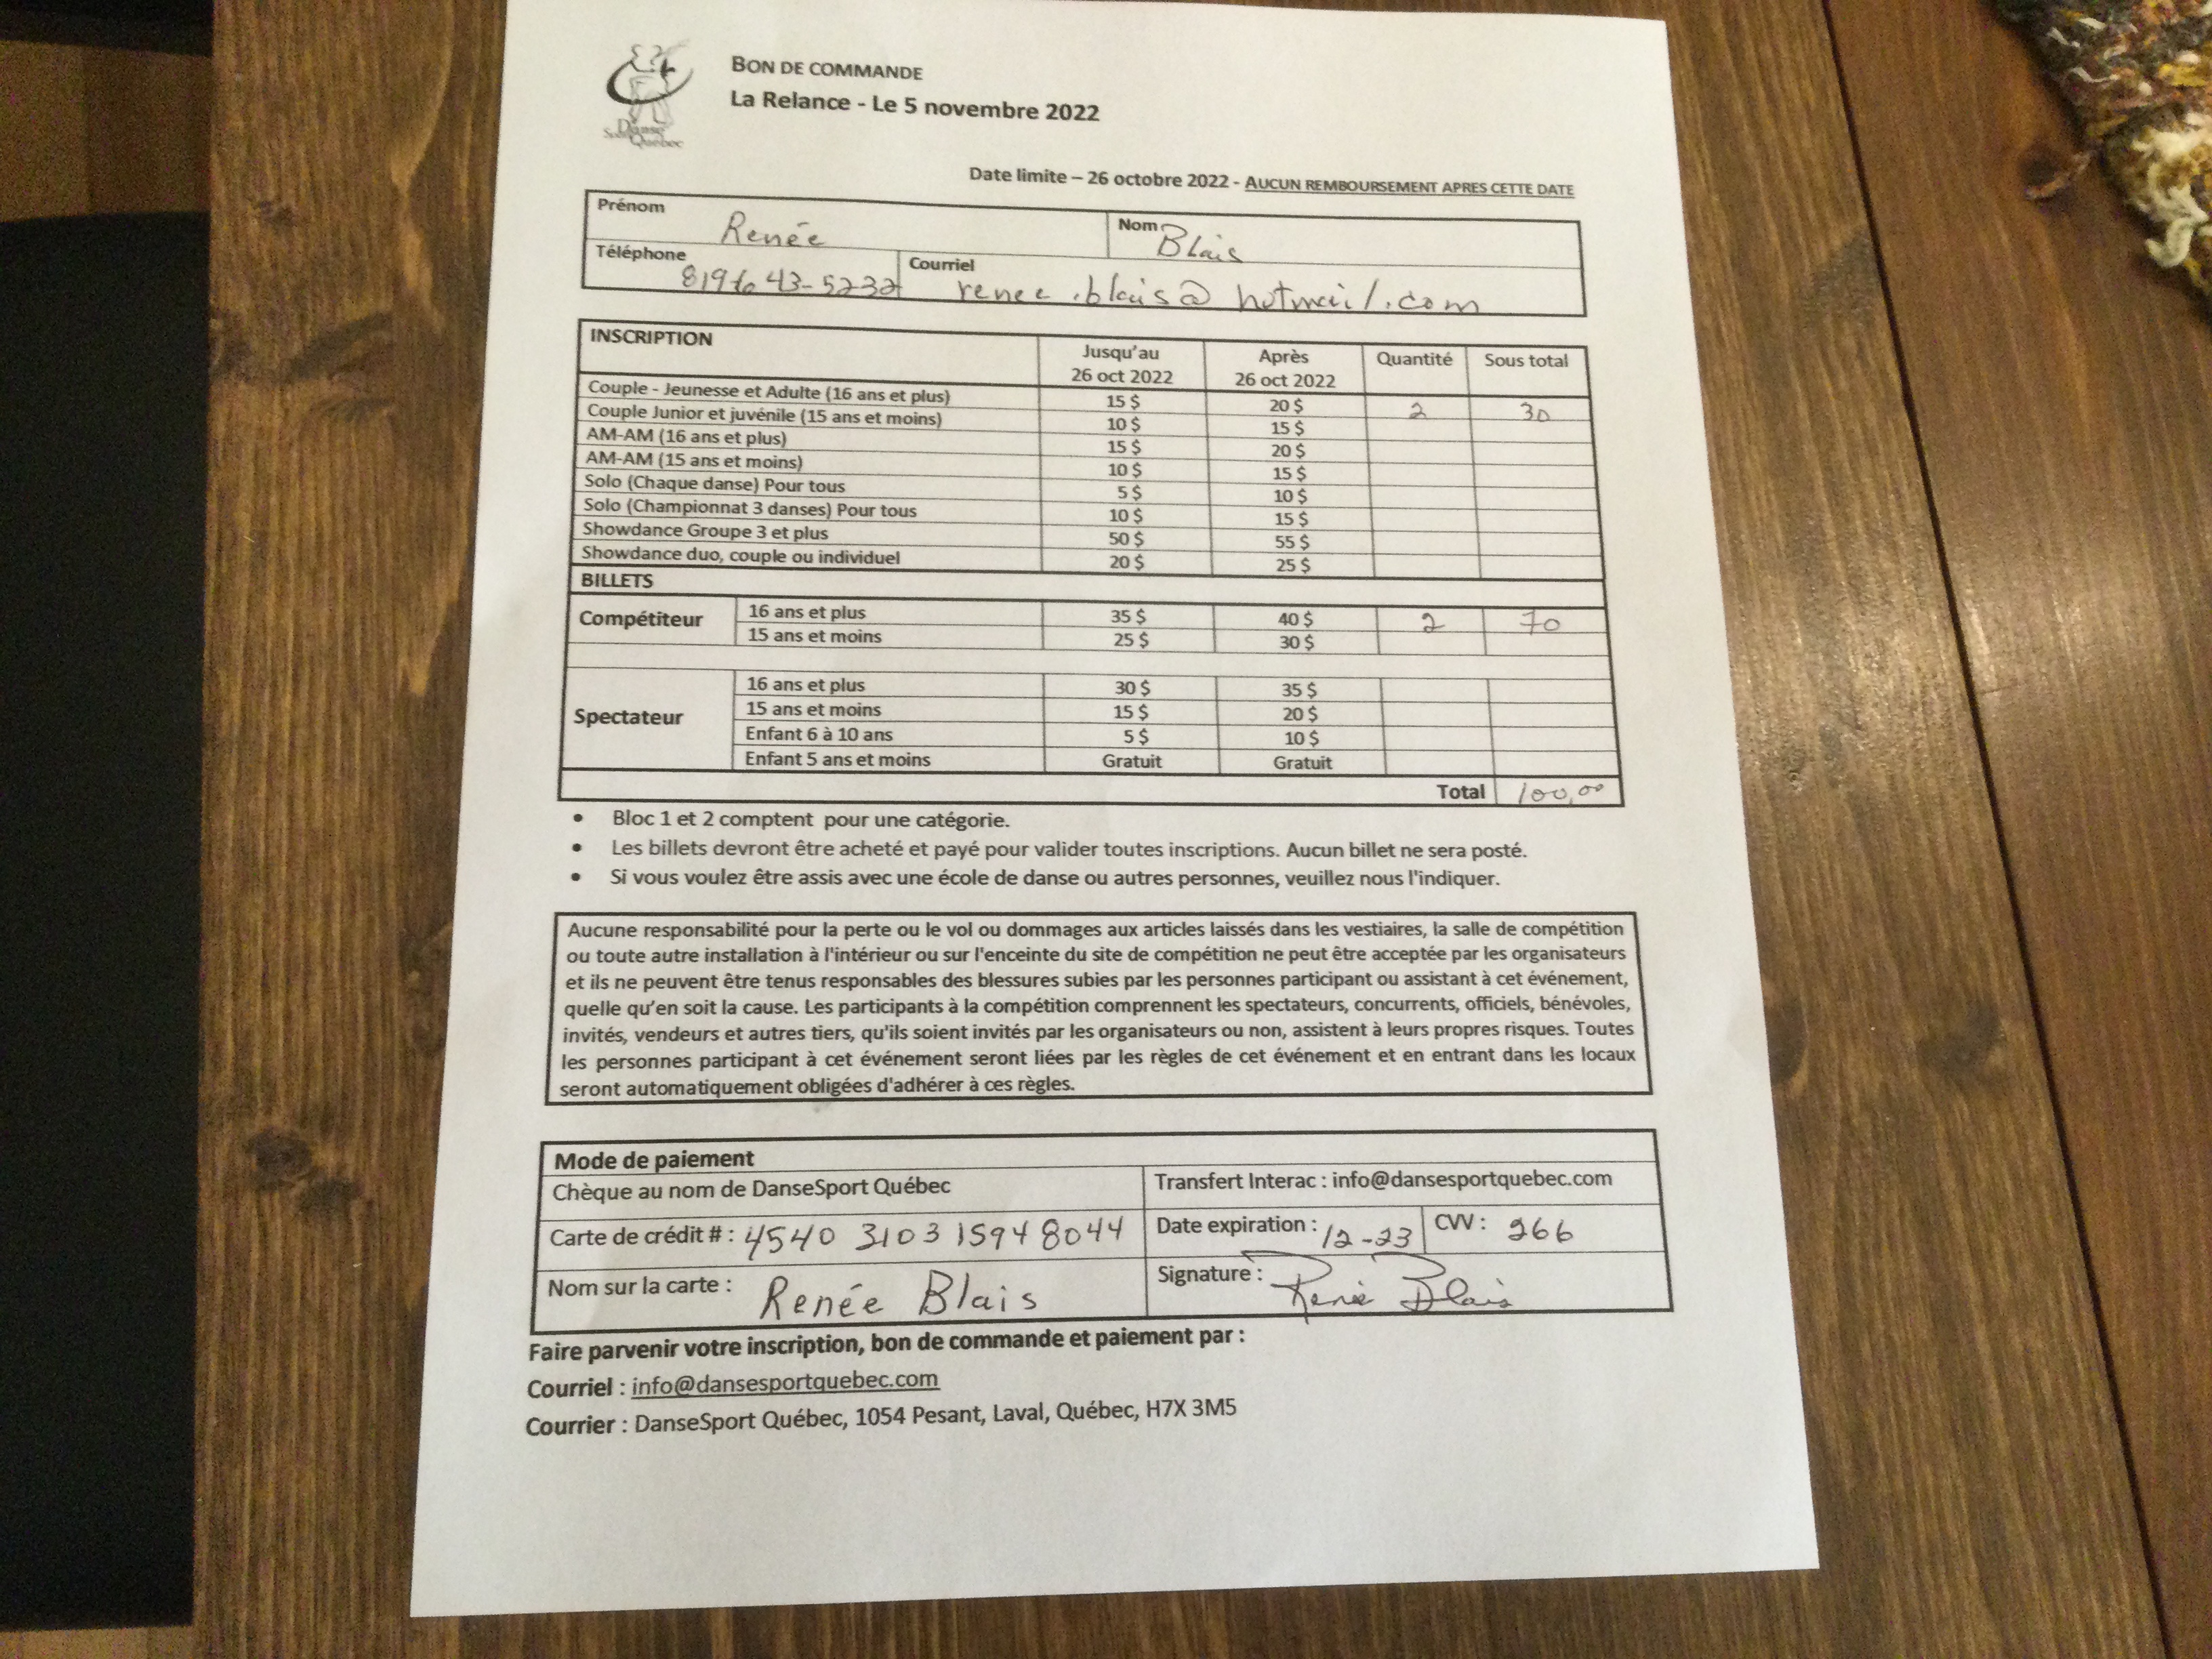 Danse
Sport
Québec
BON DE COMMANDE
La Relance - Le 5 novembre 2022
Date limite – 26 octobre 2022 - AUCUN REMBOURSEMENT APRES CETTE DATE
Prénom Renée Nom Blais
Téléphone 819 643-5232 Courriel renee.blais@hotmail.com
INSCRIPTION Jusqu'au 26 oct 2022 Après 26 oct 2022 Quantité Sous total
Couple - Jeunesse et Adulte (16 ans et plus) 15 $ 20 $ 2 30
Couple Junior et juvénile (15 ans et moins) 10 $ 15 $
AM-AM (16 ans et plus) 15 $ 20 $
AM-AM (15 ans et moins) 10 $ 15 $
Solo (Chaque danse) Pour tous 5 $ 10 $
Solo (Championnat 3 danses) Pour tous 10 $ 15 $
Showdance Groupe 3 et plus 50 $ 55 $
Showdance duo, couple ou individuel 20 $ 25 $
BILLETS
Compétiteur 16 ans et plus 35 $ 40 $ 2 70
15 ans et moins 25 $ 30 $
Spectateur 16 ans et plus 30 $ 35 $
15 ans et moins 15 $ 20 $
Enfant 6 à 10 ans 5 $ 10 $
Enfant 5 ans et moins Gratuit Gratuit
Total 100,00
• Bloc 1 et 2 comptent pour une catégorie.
• Les billets devront être acheté et payé pour valider toutes inscriptions. Aucun billet ne sera posté.
• Si vous voulez être assis avec une école de danse ou autres personnes, veuillez nous l'indiquer.
Aucune responsabilité pour la perte ou le vol ou dommages aux articles laissés dans les vestiaires, la salle de compétition
ou toute autre installation à l'intérieur ou sur l'enceinte du site de compétition ne peut être acceptée par les organisateurs
et ils ne peuvent être tenus responsables des blessures subies par les personnes participant ou assistant à cet événement,
quelle qu'en soit la cause. Les participants à la compétition comprennent les spectateurs, concurrents, officiels, bénévoles,
invités, vendeurs et autres tiers, qu'ils soient invités par les organisateurs ou non, assistent à leurs propres risques. Toutes
les personnes participant à cet événement seront liées par les règles de cet événement et en entrant dans les locaux
seront automatiquement obligées d'adhérer à ces règles.
Mode de paiement
Chèque au nom de DanseSport Québec Transfert Interac : info@dansesportquebec.com
Carte de crédit # : 4540 3103 1594 8044 Date expiration : 12-23 CVV : 266
Nom sur la carte : Renée Blais Signature : Renée Blais
Faire parvenir votre inscription, bon de commande et paiement par :
Courriel : info@dansesportquebec.com
Courrier : DanseSport Québec, 1054 Pesant, Laval, Québec, H7X 3M5